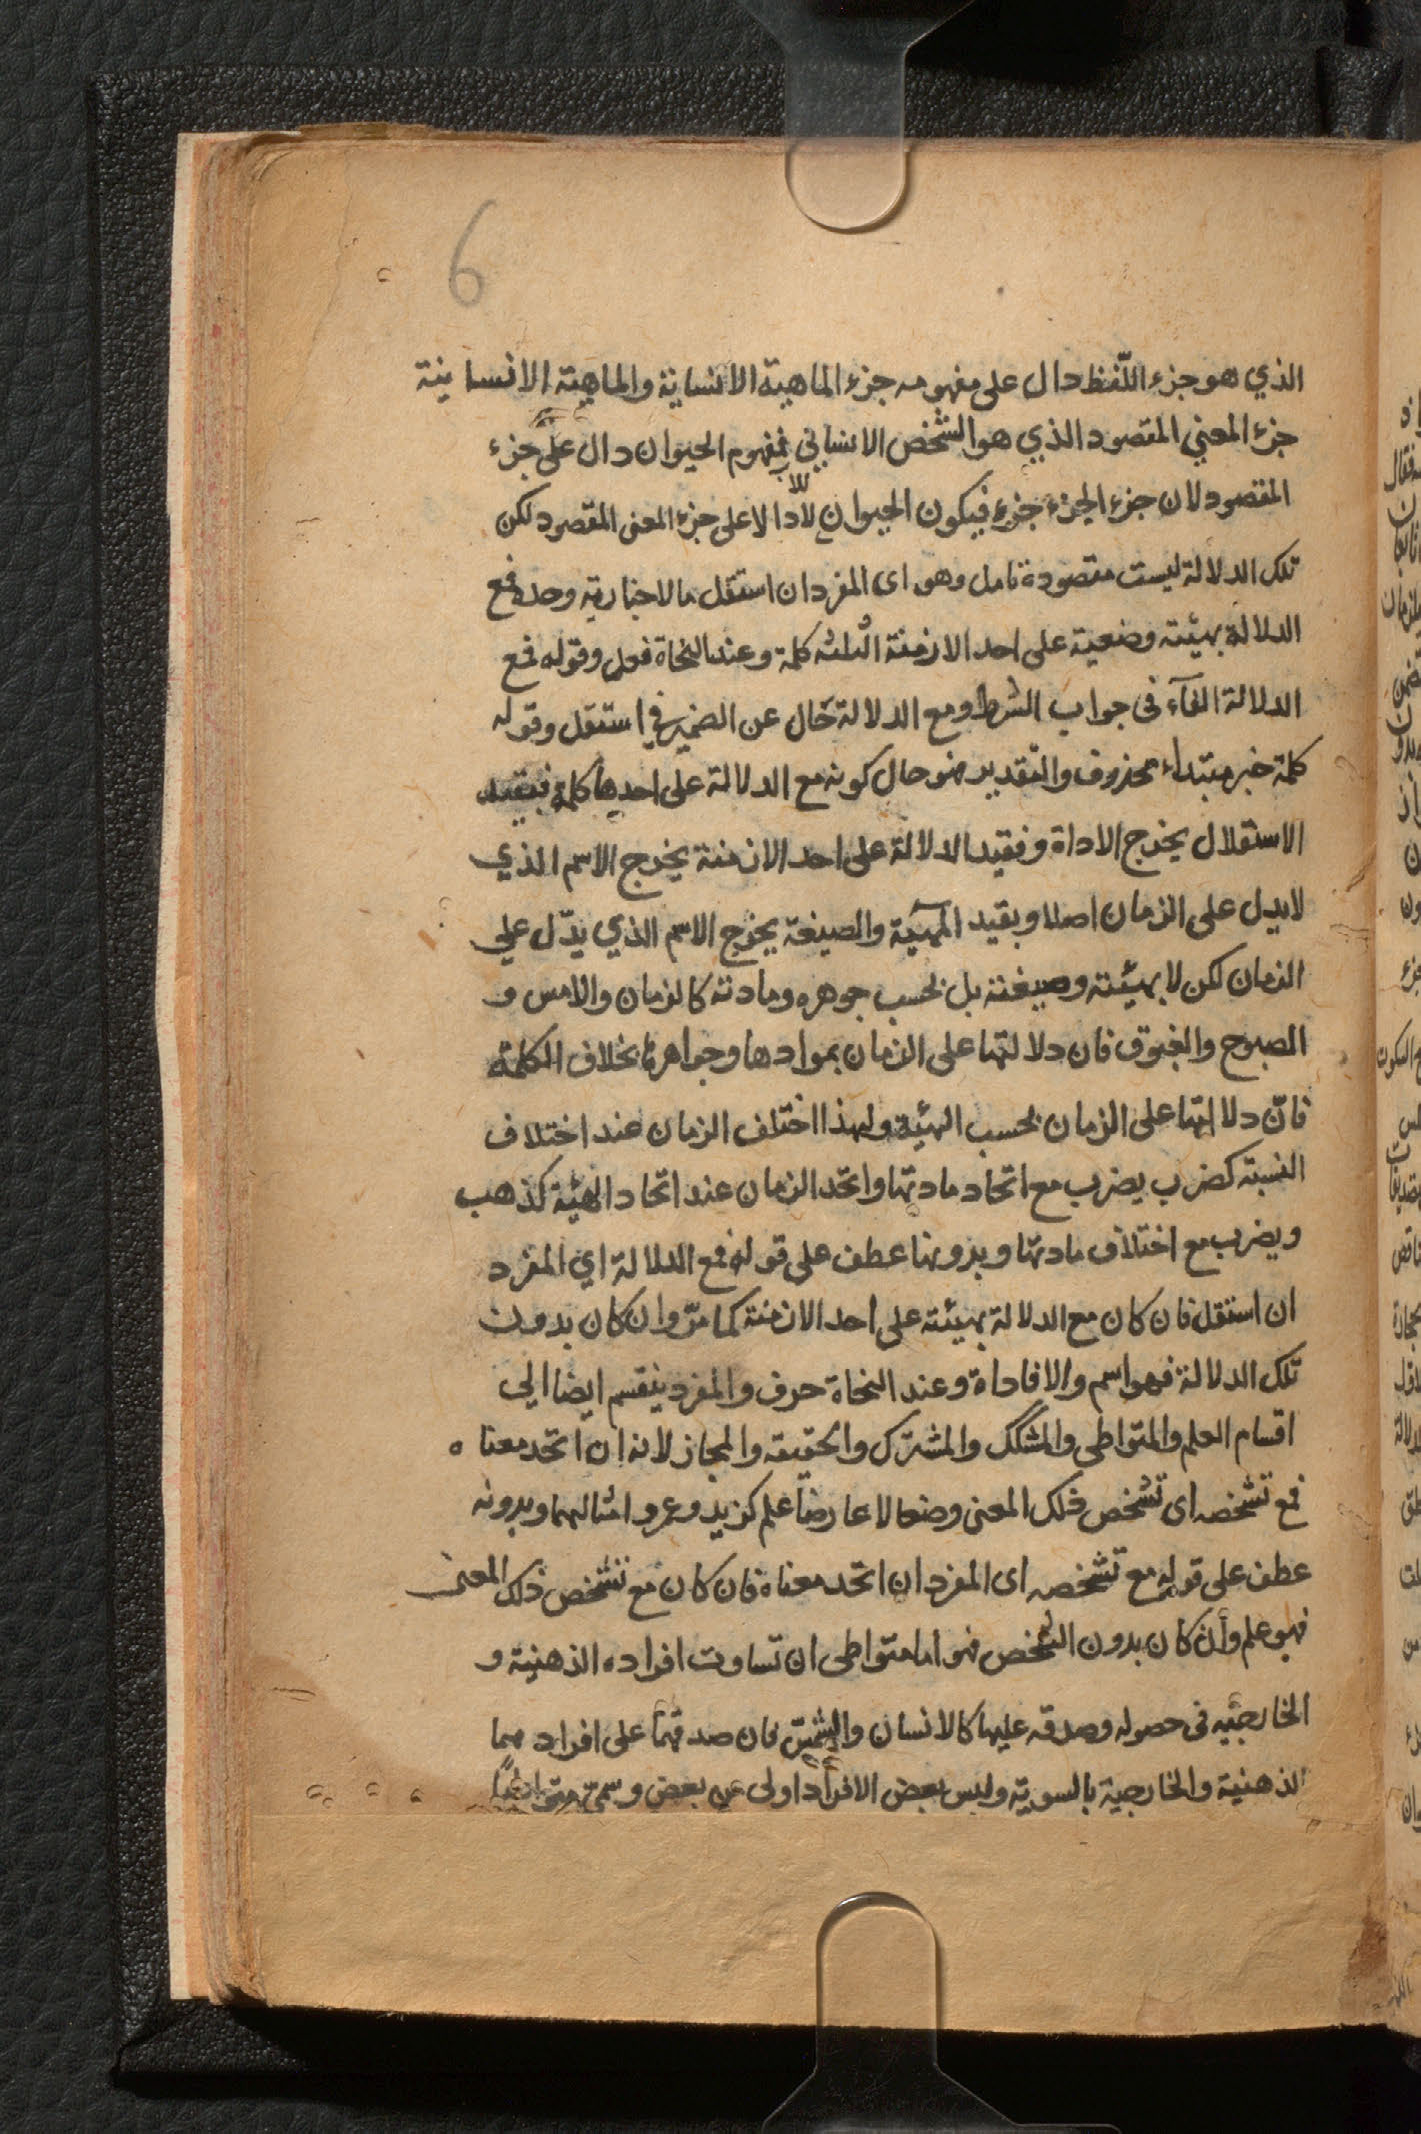 6
الذي هو جزء اللّفظ دال على مفهومه جزء الماهية الانسانية والماهية الانسانية
جزء المعني المقصود الذي هو الشخص الانساني فمفهوم الحيوان دال على جزء
المقصود لان جزء الجزء جزء فيكون الحيوان دالا على جزء المعنى المقصود لكن
تلك الدلالة ليست مقصودة تامل وهو اى المفرد ان استقل بالاخبارية وحده فمع
الدلالة بهيئته وضعية على احد الازمنة الثلثه كلمة وعند النحاة فعل وقوله فمع
الدلالة الفآء فى جواب الشرط ومع الدلالة حال عن الضمير في استقل وقوله
كلمة خبر مبتداء محذوف والتقدير فهو حال كونه مع الدلالة على احديها كلمة فبقيد
الاستقلال يخرج الاداة وفقيد الدلالة على احد الازمنة يخرج الاسم الذي
لايدل على الزمان اصلا وبقيد الهيئة والصيغة يخرج الاسم الذي يدّل علي
الزمان لكن لا بهيئته وصيغته بل بحسب جوهره ومادته كالزمان والامس و
الصبوح والغبوق فان دلالتها على الزمان بموادها وجواهرها بخلاف الكلمة
فانّ دلالتها على الزمان بحسب الهيئة ولهذا اختلف الزمان عند اختلاف
النسبته كضرب يضرب مع اتحاد مادتها واتحد الزمان عند اتحاد الهيئة كذهب
ويضرب مع اختلاف مادتها وبدونها عطف على قوله فمع الدلالة اي المفرد
ان استقل فان كان مع الدلالة بهيئته على احد الازمنة كما مرّ وان كان بدون
تلك الدلالة فهو اسم والا فاداة وعند النحاة حرف والمفرد ينقسم ايضا الي
اقسام العلم والمتواطى والمشكك والمشترك والحقيقه والمجاز لانه ان اتحد معناه
فمع تشخصه اى تشخص ذلك المعنى وضعا لا عارضا علم كزيد وعمرو امثالهما وبدونه
عطف على قوله مع تشخصه اى المفرد ان اتحد معناه فان كان مع تشخص ذلك المعنى
فهو علم وان كان بدون التشخص فهو اما متواطى ان تساوت افراده الذهنية و
الخارجيّه فى حصوله وصدقه عليها كالانسان والشمس فان صدقهما على افرادهما
الذهنية والخارجية بالسويّة وليس بعض الافراد اولى من بعض وسمّي متواطئا